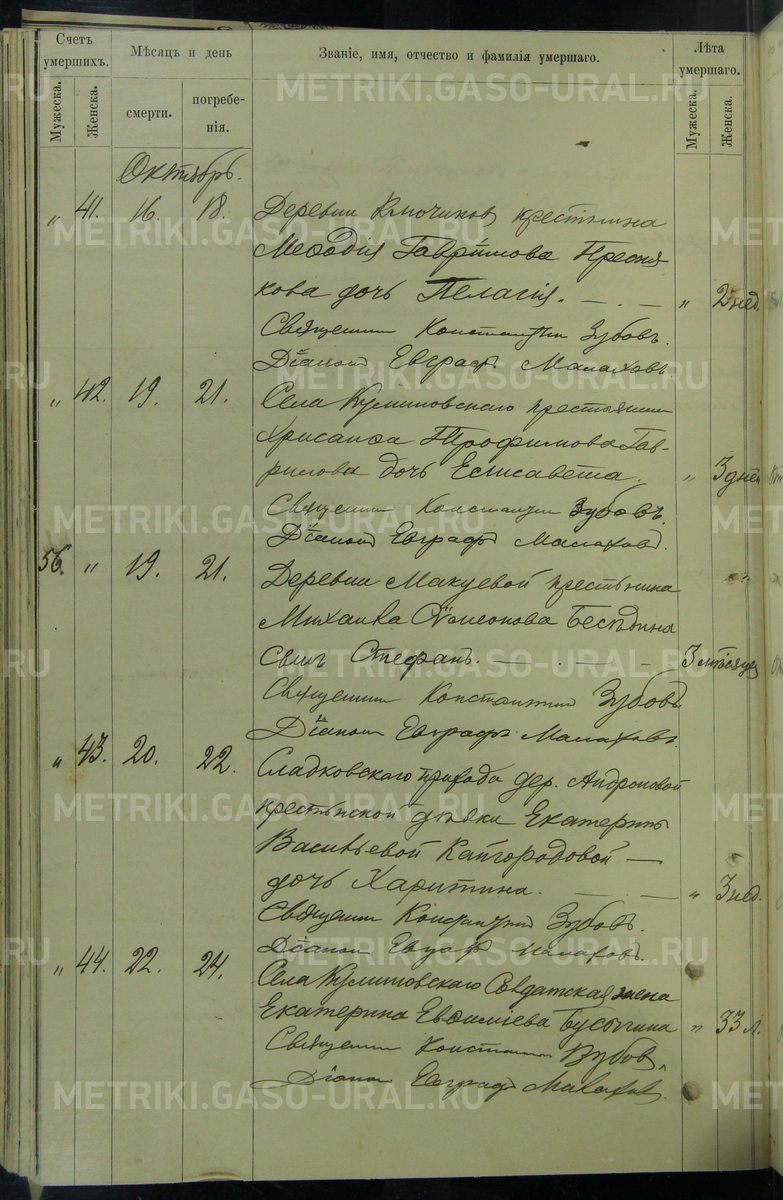 Счетъ умершихъ.
Мѣсяцъ и день
Званіе, имя, отчество и фамилія умершаго.
Лѣта умершаго.
Мужеска.
Женска.
смерти.
погребе-
нія.
Мужеска.
Женска.
Октябрь.
„ 41. 16. 18. Деревни Ключиковъ крестьянина
Меѳодія Гаврилова Пресня-
кова дочь Пелагія. „ 2 нед.
Священникъ Константинъ Зубовъ.
Діаконъ Евграфъ Малаховъ.
„ 42. 19. 21. Села крестьянина
Хрисанѳа Трофимова Гав-
рилова дочь Елисавета. „ 3 дней
Священникъ Константинъ Зубовъ.
Діаконъ Евграфъ Малаховъ.
56. „ 19. 21. Деревни Макуевой крестьянина
Михаила Симеонова Бесѣдина
сынъ Стефанъ. 3 мѣсяца
Священникъ Константинъ Зубовъ
Діаконъ Евграфъ Малаховъ.
„ 43. 20. 22. Сладковскаго прихода дер. Андроновой
крестьянской дѣвки Екатерины
Васильевой Кайгородовой —
дочь Харитина. „ 3 нед.
Священникъ Константинъ Зубовъ.
Діаконъ Евграфъ Малаховъ.
„ 44. 22. 24. Села Солдатская жена
Екатерина Евѳиміева Бусыгина „ 33 л.
Священникъ Константинъ Зубовъ
Діаконъ Евграфъ Малаховъ.
METRIKI.GASO-URAL.RU